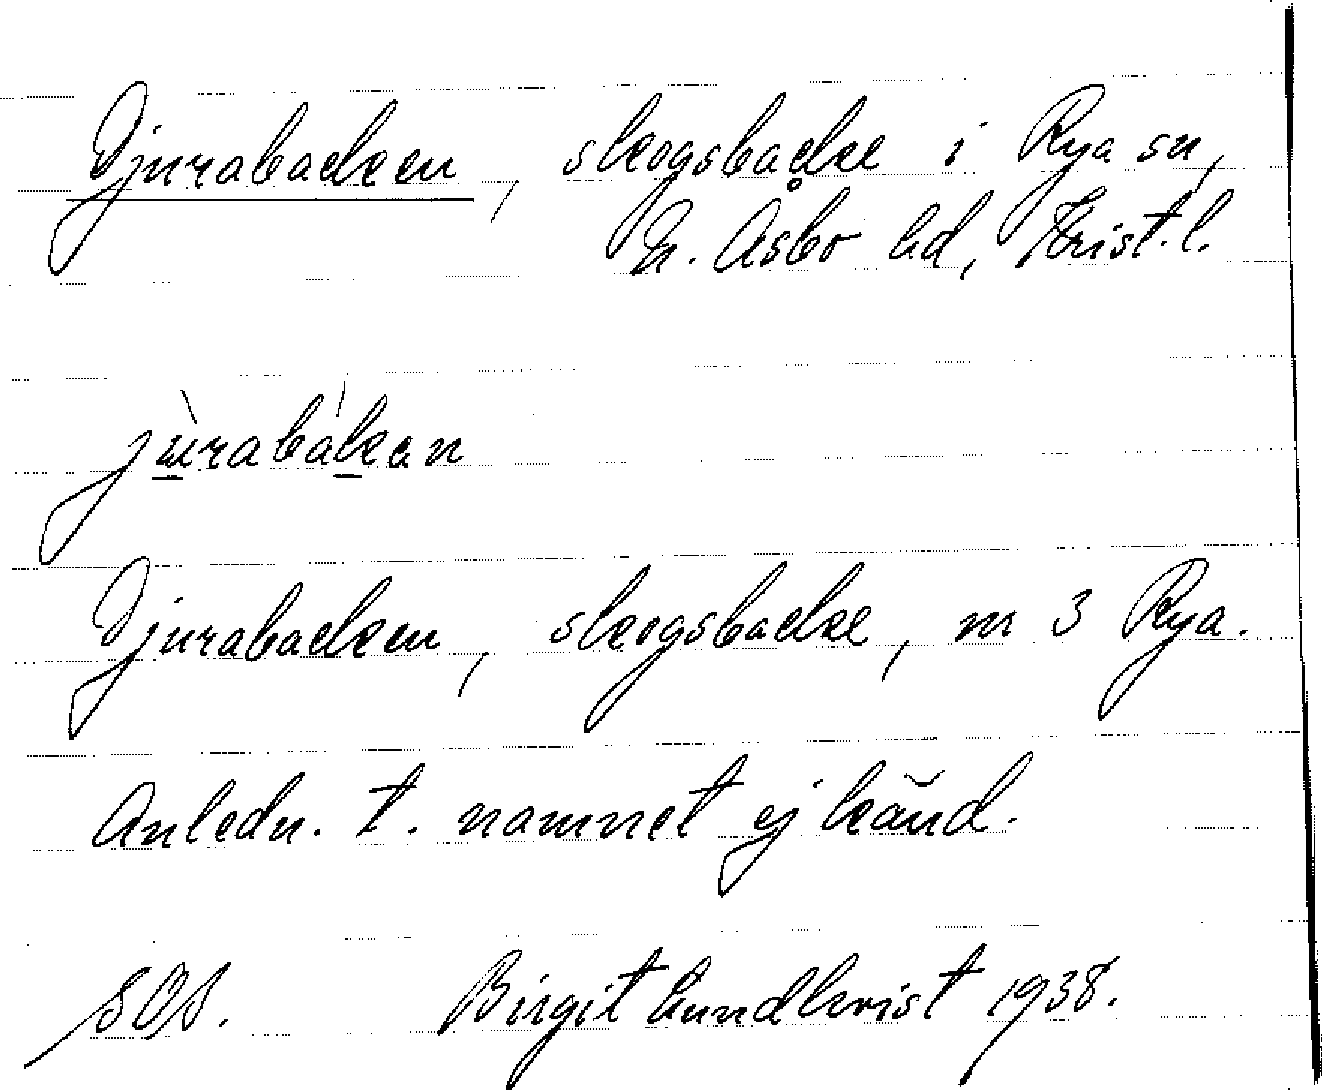 Djurabacken, skogsbacke i Rya sn,
N. Åsbo hd, Krist. l.
jùrabákan
Djurabacken, skogsbacke, nr 3 Rya.
Anledn. t. namnet ej känd.
SOS. Birgit Lundkvist 1938.